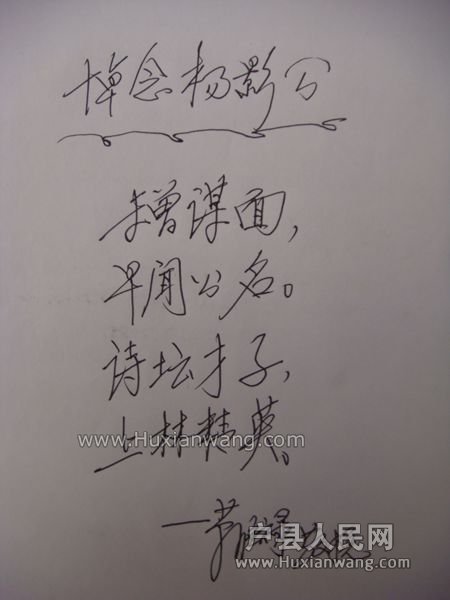 悼念杨影公
未曾谋面，
早闻公名。
诗坛才子，
上林精英。
www.Huxianwang.com
户县人民网
www.Huxianwang.com